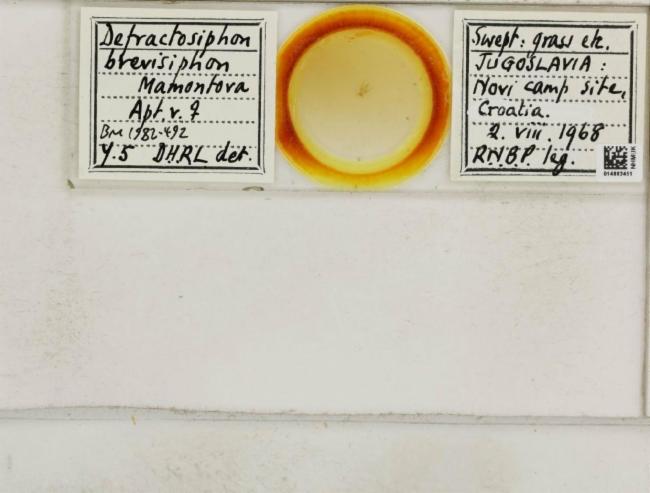 Defractosiphon
brevisiphon
Mamontova
Apt. v. ♀
BM 1982-492
Y.5 DHRL det.
Swept: grass etc.
JUGOSLAVIA:
Novi camp site,
Croatia.
2. viii. 1968
RNBP leg.
NHMUK
014883451